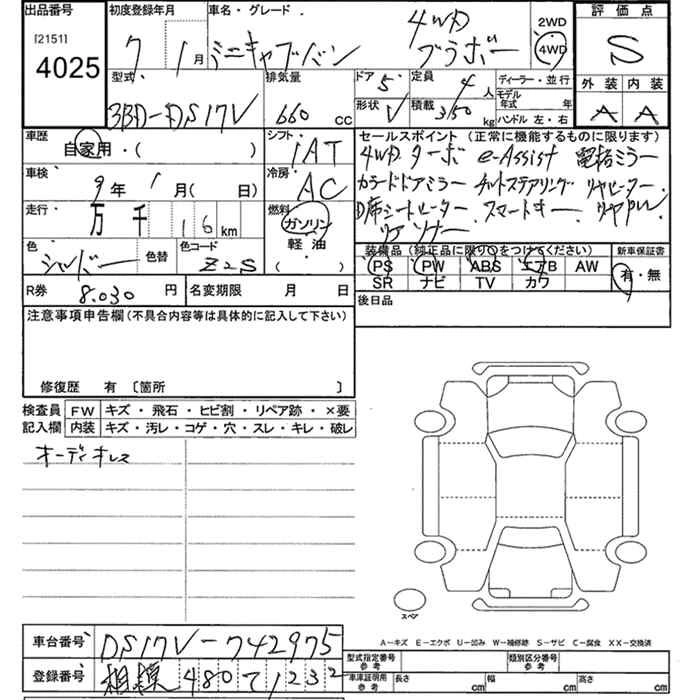 出品番号 初度登録年月 車名・グレード 4WD 2WD 評価点
[2151] 4025 7 1月 ミニキャブバン ブラボー 4WD S
型式 排気量 ドア 5 定員 4人 ディーラー・並行 外装 内装
3BD-DS17V 660 cc 形状 V 積載 350 kg モデル年式 年 A A
ハンドル 左・右
車歴 自家用・( ) シフト IAT セールスポイント (正常に機能するものに限ります)
4WD ターボ e-Assist 電格ミラー
車検 9年 1月( 日) 冷房 AC カラードドアミラー チルトステアリング リヤヒーター
走行 万 千 16 km 燃料 ガソリン D席シートヒーター スマートキー リヤ
軽油 リヤソナー
色 シルバー 色替 色コード Z2S ( ) 装備品 (純正品に限り○をつけてください) 新車保証書
PS PW ABS エアB AW 有・無
SR ナビ TV カワ
R券 8.030 円 名変期限 月 日 後日品
注意事項申告欄(不具合内容等は具体的に記入して下さい)
修復歴 有 〔箇所 〕
検査員 FW キズ・飛石・ヒビ割・リペア跡・×要
記入欄 内装 キズ・汚レ・コゲ・穴・スレ・キレ・破レ
オーディオレス
スペア
A-キズ E-エクボ U-凹み W-補修跡 S-サビ C-腐食 XX-交換済
車台番号 DS17V-742975
型式指定番号 参考 類別区分番号 参考
登録番号 相模 480 て 1232
車庫証明用 参考 長さ cm 幅 cm 高さ cm